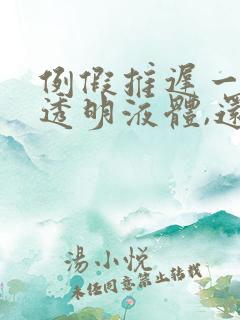 例假推遲一
透明液體,還
湯小悅
未經同意禁止轉載